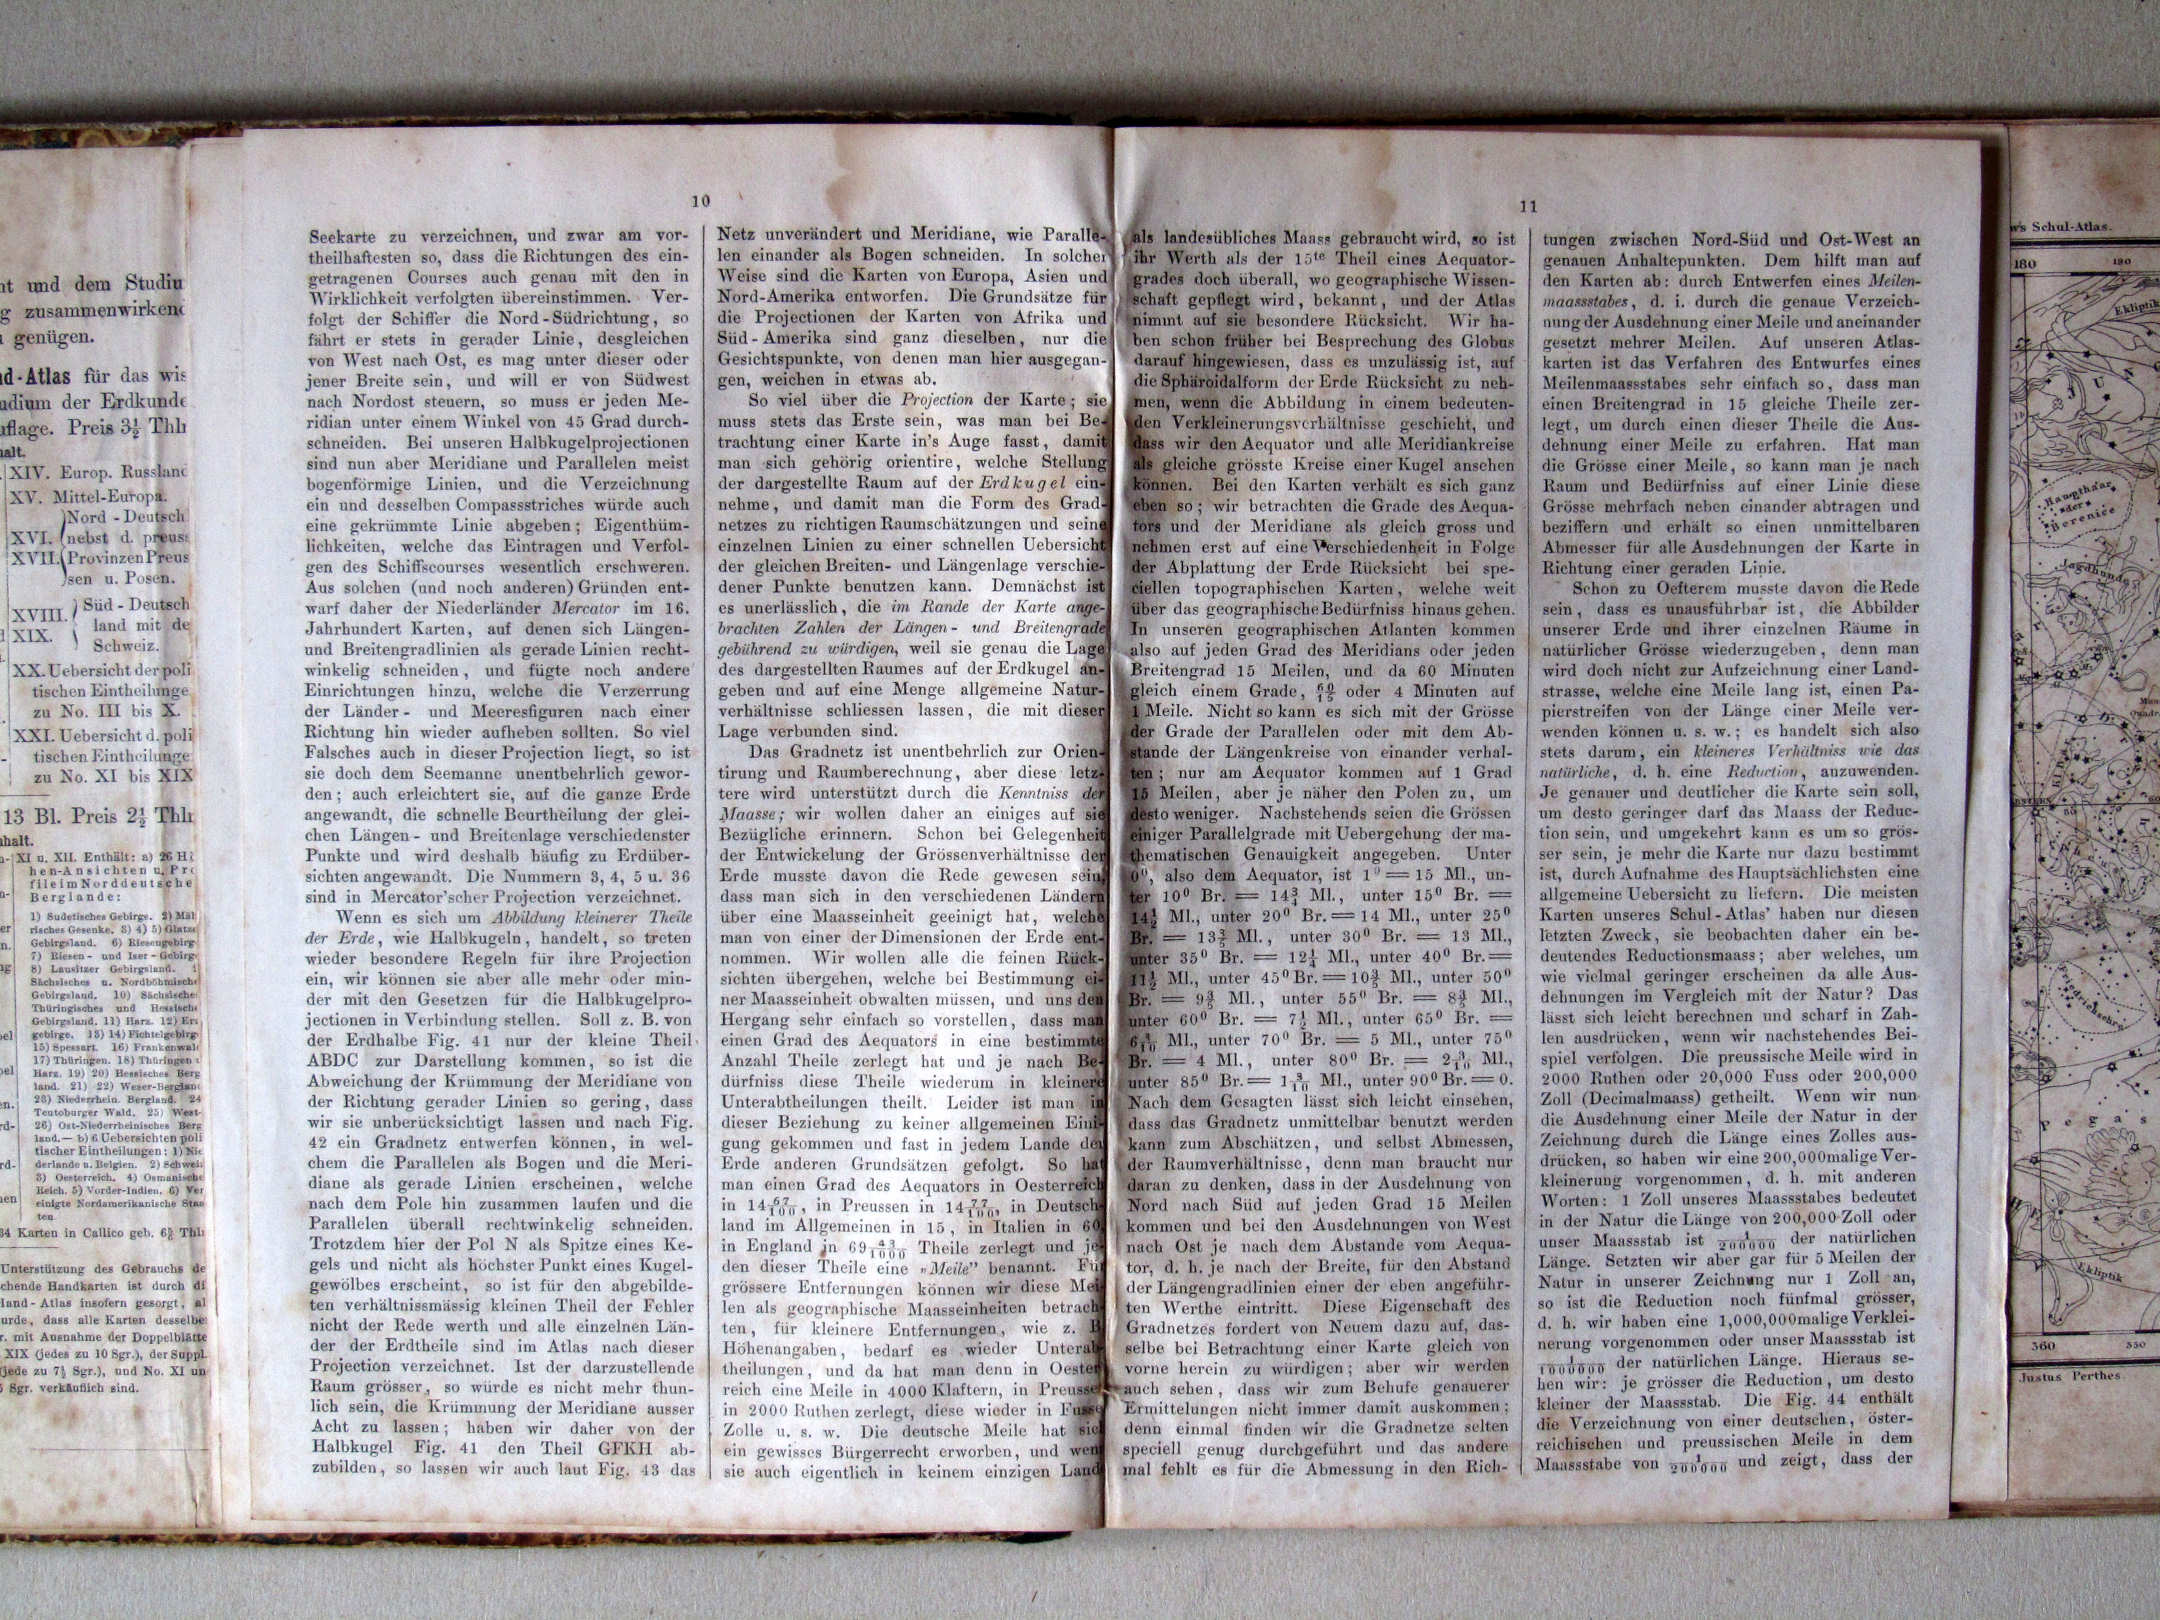 10
Seekarte zu verzeichnen, und zwar am vor-
theilhaftesten so, dass die Richtungen des ein-
getragenen Courses auch genau mit den in
Wirklichkeit verfolgten übereinstimmen. Ver-
folgt der Schiffer die Nord-Südrichtung, so
fährt er stets in gerader Linie, desgleichen
von West nach Ost, es mag unter dieser oder
jener Breite sein, und will er von Südwest
nach Nordost steuern, so muss er jeden Me-
ridian unter einem Winkel von 45 Grad durch-
schneiden. Bei unseren Halbkugelprojectionen
sind nun aber Meridiane und Parallelen meist
bogenförmige Linien, und die Verzeichnung
ein und desselben Compassstriches würde auch
eine gekrümmte Linie abgeben; Eigenthüm-
lichkeiten, welche das Eintragen und Verfol-
gen des Schiffscourses wesentlich erschweren.
Aus solchen (und noch anderen) Gründen ent-
warf daher der Niederländer Mercator im 16.
Jahrhundert Karten, auf denen sich Längen-
und Breitengradlinien als gerade Linien recht-
winkelig schneiden, und fügte noch andere
Einrichtungen hinzu, welche die Verzerrung
der Länder- und Meeresfiguren nach einer
Richtung hin wieder aufheben sollten. So viel
Falsches auch in dieser Projection liegt, so ist
sie doch dem Seemanne unentbehrlich gewor-
den; auch erleichtert sie, auf die ganze Erde
angewandt, die schnelle Beurtheilung der glei-
chen Längen- und Breitenlage verschiedenster
Punkte und wird deshalb häufig zu Erdüber-
sichten angewandt. Die Nummern 3, 4, 5 u. 36
sind in Mercator'scher Projection verzeichnet.
Wenn es sich um Abbildung kleinerer Theile
der Erde, wie Halbkugeln, handelt, so treten
wieder besondere Regeln für ihre Projection
ein, wir können sie aber alle mehr oder min-
der mit den Gesetzen für die Halbkugelpro-
jectionen in Verbindung stellen. Soll z. B. von
der Erdhalbe Fig. 41 nur der kleine Theil
ABDC zur Darstellung kommen, so ist die
Abweichung der Krümmung der Meridiane von
der Richtung gerader Linien so gering, dass
wir sie unberücksichtigt lassen und nach Fig.
42 ein Gradnetz entwerfen können, in wel-
chem die Parallelen als Bogen und die Meri-
diane als gerade Linien erscheinen, welche
nach dem Pole hin zusammen laufen und die
Parallelen überall rechtwinkelig schneiden.
Trotzdem hier der Pol N als Spitze eines Ke-
gels und nicht als höchster Punkt eines Kugel-
gewölbes erscheint, so ist für den abgebilde-
ten verhältnissmässig kleinen Theil der Fehler
nicht der Rede werth und alle einzelnen Län-
der der Erdtheile sind im Atlas nach dieser
Projection verzeichnet. Ist der darzustellende
Raum grösser, so würde es nicht mehr thun-
lich sein, die Krümmung der Meridiane ausser
Acht zu lassen; haben wir daher von der
Halbkugel Fig. 41 den Theil GFKH ab-
zubilden, so lassen wir auch laut Fig. 43 das
Netz unverändert und Meridiane, wie Paralle-
len einander als Bogen schneiden. In solcher
Weise sind die Karten von Europa, Asien und
Nord-Amerika entworfen. Die Grundsätze für
die Projectionen der Karten von Afrika und
Süd-Amerika sind ganz dieselben, nur die
Gesichtspunkte, von denen man hier ausgegan-
gen, weichen in etwas ab.
So viel über die Projection der Karte; sie
muss stets das Erste sein, was man bei Be-
trachtung einer Karte in's Auge fasst, damit
man sich gehörig orientire, welche Stellung
der dargestellte Raum auf der Erdkugel ein-
nehme, und damit man die Form des Grad-
netzes zu richtigen Raumschätzungen und seine
einzelnen Linien zu einer schnellen Uebersicht
der gleichen Breiten- und Längenlage verschie-
dener Punkte benutzen kann. Demnächst ist
es unerlässlich, die im Rande der Karte ange-
brachten Zahlen der Längen- und Breitengrade
gebührend zu würdigen, weil sie genau die Lage
des dargestellten Raumes auf der Erdkugel an-
geben und auf eine Menge allgemeine Natur-
verhältnisse schliessen lassen, die mit dieser
Lage verbunden sind.
Das Gradnetz ist unentbehrlich zur Orien-
tirung und Raumberechnung, aber diese letz-
tere wird unterstützt durch die Kenntniss der
Maasse; wir wollen daher an einiges auf sie
Bezügliche erinnern. Schon bei Gelegenheit
der Entwickelung der Grössenverhältnisse der
Erde musste davon die Rede gewesen sein,
dass man sich in den verschiedenen Ländern
über eine Maasseinheit geeinigt hat, welche
man von einer der Dimensionen der Erde ent-
nommen. Wir wollen alle die feinen Rück-
sichten übergehen, welche bei Bestimmung ei-
ner Maasseinheit obwalten müssen, und uns den
Hergang sehr einfach so vorstellen, dass man
einen Grad des Aequators in eine bestimmte
Anzahl Theile zerlegt hat und je nach Be-
dürfniss diese Theile wiederum in kleinere
Unterabtheilungen theilt. Leider ist man in
dieser Beziehung zu keiner allgemeinen Eini-
gung gekommen und fast in jedem Lande der
Erde anderen Grundsätzen gefolgt. So hat
man einen Grad des Aequators in Oesterreich
in 14 67/100, in Preussen in 14 77/100, in Deutsch-
land im Allgemeinen in 15, in Italien in 60,
in England in 69 43/1000 Theile zerlegt und je-
den dieser Theile eine „Meile" benannt. Für
grössere Entfernungen können wir diese Mei-
len als geographische Maasseinheiten betrach-
ten, für kleinere Entfernungen, wie z. B.
Höhenangaben, bedarf es wieder Unterab-
theilungen, und da hat man denn in Oester-
reich eine Meile in 4000 Klaftern, in Preussen
in 2000 Ruthen zerlegt, diese wieder in Fusse
Zolle u. s. w. Die deutsche Meile hat sich
ein gewisses Bürgerrecht erworben, und wenn
sie auch eigentlich in keinem einzigen Land
11
als landesübliches Maass gebraucht wird, so ist
ihr Werth als der 15te Theil eines Aequator-
grades doch überall, wo geographische Wissen-
schaft gepflegt wird, bekannt, und der Atlas
nimmt auf sie besondere Rücksicht. Wir ha-
ben schon früher bei Besprechung des Globus
darauf hingewiesen, dass es unzulässig ist, auf
die Sphäroidalform der Erde Rücksicht zu neh-
men, wenn die Abbildung in einem bedeuten-
den Verkleinerungsverhältnisse geschieht, und
dass wir den Aequator und alle Meridiankreise
als gleiche grösste Kreise einer Kugel ansehen
können. Bei den Karten verhält es sich ganz
eben so; wir betrachten die Grade des Aequa-
tors und der Meridiane als gleich gross und
nehmen erst auf eine Verschiedenheit in Folge
der Abplattung der Erde Rücksicht bei spe-
ciellen topographischen Karten, welche weit
über das geographische Bedürfniss hinaus gehen.
In unseren geographischen Atlanten kommen
also auf jeden Grad des Meridians oder jeden
Breitengrad 15 Meilen, und da 60 Minuten
gleich einem Grade, 60/15 oder 4 Minuten auf
1 Meile. Nicht so kann es sich mit der Grösse
der Grade der Parallelen oder mit dem Ab-
stande der Längenkreise von einander verhal-
ten; nur am Aequator kommen auf 1 Grad
15 Meilen, aber je näher den Polen zu, um
desto weniger. Nachstehends seien die Grössen
einiger Parallelgrade mit Uebergehung der ma-
thematischen Genauigkeit angegeben. Unter
0°, also dem Aequator, ist 1° = 15 Ml., un-
ter 10° Br. = 14¾ Ml., unter 15° Br. =
14½ Ml., unter 20° Br. = 14 Ml., unter 25°
Br. = 13⅗ Ml., unter 30° Br. = 13 Ml.,
unter 35° Br. = 12¼ Ml., unter 40° Br. =
11½ Ml., unter 45° Br. = 10⅗ Ml., unter 50°
Br. = 9⅗ Ml., unter 55° Br. = 8⅗ Ml.,
unter 60° Br. = 7½ Ml., unter 65° Br. =
6 3/10 Ml., unter 70° Br. = 5 Ml., unter 75°
Br. = 4 Ml., unter 80° Br. = 2 3/10 Ml.,
unter 85° Br. = 1 3/10 Ml., unter 90° Br. = 0.
Nach dem Gesagten lässt sich leicht einsehen,
dass das Gradnetz unmittelbar benutzt werden
kann zum Abschätzen, und selbst Abmessen,
der Raumverhältnisse, denn man braucht nur
daran zu denken, dass in der Ausdehnung von
Nord nach Süd auf jeden Grad 15 Meilen
kommen und bei den Ausdehnungen von West
nach Ost je nach dem Abstande vom Aequa-
tor, d. h. je nach der Breite, für den Abstand
der Längengradlinien einer der eben angeführ-
ten Werthe eintritt. Diese Eigenschaft des
Gradnetzes fordert von Neuem dazu auf, das-
selbe bei Betrachtung einer Karte gleich von
vorne herein zu würdigen; aber wir werden
auch sehen, dass wir zum Behufe genauerer
Ermittelungen nicht immer damit auskommen;
denn einmal finden wir die Gradnetze selten
speciell genug durchgeführt und das andere
mal fehlt es für die Abmessung in den Rich-
tungen zwischen Nord-Süd und Ost-West an
genauen Anhaltepunkten. Dem hilft man auf
den Karten ab: durch Entwerfen eines Meilen-
maassstabes, d. i. durch die genaue Verzeich-
nung der Ausdehnung einer Meile und aneinander
gesetzt mehrer Meilen. Auf unseren Atlas-
karten ist das Verfahren des Entwurfes eines
Meilenmaassstabes sehr einfach so, dass man
einen Breitengrad in 15 gleiche Theile zer-
legt, um durch einen dieser Theile die Aus-
dehnung einer Meile zu erfahren. Hat man
die Grösse einer Meile, so kann man je nach
Raum und Bedürfniss auf einer Linie diese
Grösse mehrfach neben einander abtragen und
beziffern und erhält so einen unmittelbaren
Abmesser für alle Ausdehnungen der Karte in
Richtung einer geraden Linie.
Schon zu Oefterem musste davon die Rede
sein, dass es unausführbar ist, die Abbilder
unserer Erde und ihrer einzelnen Räume in
natürlicher Grösse wiederzugeben, denn man
wird doch nicht zur Aufzeichnung einer Land-
strasse, welche eine Meile lang ist, einen Pa-
pierstreifen von der Länge einer Meile ver-
wenden können u. s. w.; es handelt sich also
stets darum, ein kleineres Verhältniss wie das
natürliche, d. h. eine Reduction, anzuwenden.
Je genauer und deutlicher die Karte sein soll,
um desto geringer darf das Maass der Reduc-
tion sein, und umgekehrt kann es um so grös-
ser sein, je mehr die Karte nur dazu bestimmt
ist, durch Aufnahme des Hauptsächlichsten eine
allgemeine Uebersicht zu liefern. Die meisten
Karten unseres Schul-Atlas' haben nur diesen
letzten Zweck, sie beobachten daher ein be-
deutendes Reductionsmaass; aber welches, um
wie vielmal geringer erscheinen da alle Aus-
dehnungen im Vergleich mit der Natur? Das
lässt sich leicht berechnen und scharf in Zah-
len ausdrücken, wenn wir nachstehendes Bei-
spiel verfolgen. Die preussische Meile wird in
2000 Ruthen oder 20,000 Fuss oder 200,000
Zoll (Decimalmaass) getheilt. Wenn wir nun
die Ausdehnung einer Meile der Natur in der
Zeichnung durch die Länge eines Zolles aus-
drücken, so haben wir eine 200,000malige Ver-
kleinerung vorgenommen, d. h. mit anderen
Worten: 1 Zoll unseres Maassstabes bedeutet
in der Natur die Länge von 200,000 Zoll oder
unser Maassstab ist 1/200000 der natürlichen
Länge. Setzten wir aber gar für 5 Meilen der
Natur in unserer Zeichnung nur 1 Zoll an,
so ist die Reduction noch fünfmal grösser,
d. h. wir haben eine 1,000,000malige Verklei-
nerung vorgenommen oder unser Maassstab ist
1/1000000 der natürlichen Länge. Hieraus se-
hen wir: je grösser die Reduction, um desto
kleiner der Maassstab. Die Fig. 44 enthält
die Verzeichnung von einer deutschen, öster-
reichischen und preussischen Meile in dem
Maassstabe von 1/200000 und zeigt, dass der
und dem Studiu
zusammenwirkend
genügen.
d-Atlas für das wis
dium der Erdkunde
flage. Preis 3½ Thlr
XIV. Europ. Russland
XV. Mittel-Europa.
Nord-Deutsch
XVI. nebst d. preuss
XVII. Provinzen Preus
sen u. Posen.
XVIII. Süd-Deutsch
land mit de
XIX. Schweiz.
XX. Uebersicht der poli
tischen Eintheilunge
zu No. III bis X.
XXI. Uebersicht d. poli
tischen Eintheilunge
zu No. XI bis XIX
13 Bl. Preis 2½ Thlr
XI u. XII. Enthält: a) 26 Hö
hen-Ansichten u. Pro
file im Norddeutsche
Berglande:
1) Sudetisches Gebirge. 2) Mäh
risches Gesenke. 3) 4) 5) Glatze
Gebirgsland. 6) Riesengebirg
7) Riesen- und Iser-Gebirg
8) Lausitzer Gebirgsland.
Sächsisches u. Nordböhmische
Gebirgsland. 10) Sächsische
Thüringisches und Hessische
Gebirgsland. 11) Harz. 12) Erz
gebirge. 13) 14) Fichtelgebirg
15) Spessart. 16) Frankenwald
17) Thüringen. 18) Thüringen
Harz. 19) 20) Hessisches Berg
land. 21) 22) Weser-Bergland
23) Niederrhein. Bergland. 24
Teutoburger Wald. 25) West-
26) Ost-Niederrheinisches Berg
land. — b) 6 Uebersichten poli
tischer Eintheilungen: 1) Nie
derlande u. Belgien. 2) Schweiz
3) Oesterreich. 4) Osmanische
Reich. 5) Vorder-Indien. 6) Ver
einigte Nordamerikanische Staa
ten.
34 Karten in Callico geb. 6⅚ Thlr
Unterstützung des Gebrauchs de
chende Handkarten ist durch di
land-Atlas insofern gesorgt, al
urde, dass alle Karten desselbe
mit Ausnahme der Doppelblätte
XIX (jedes zu 10 Sgr.), der Suppl.
(jede zu 7½ Sgr.), und No. XI un
Sgr. verkäuflich sind.
w's Schul-Atlas.
180
190
Ekliptik
JUNG
Haupthaar
der
Berenice
Jagdhunde
Friedrichsehre
Pegas
Ekliptik
360
350
Justus Perthes